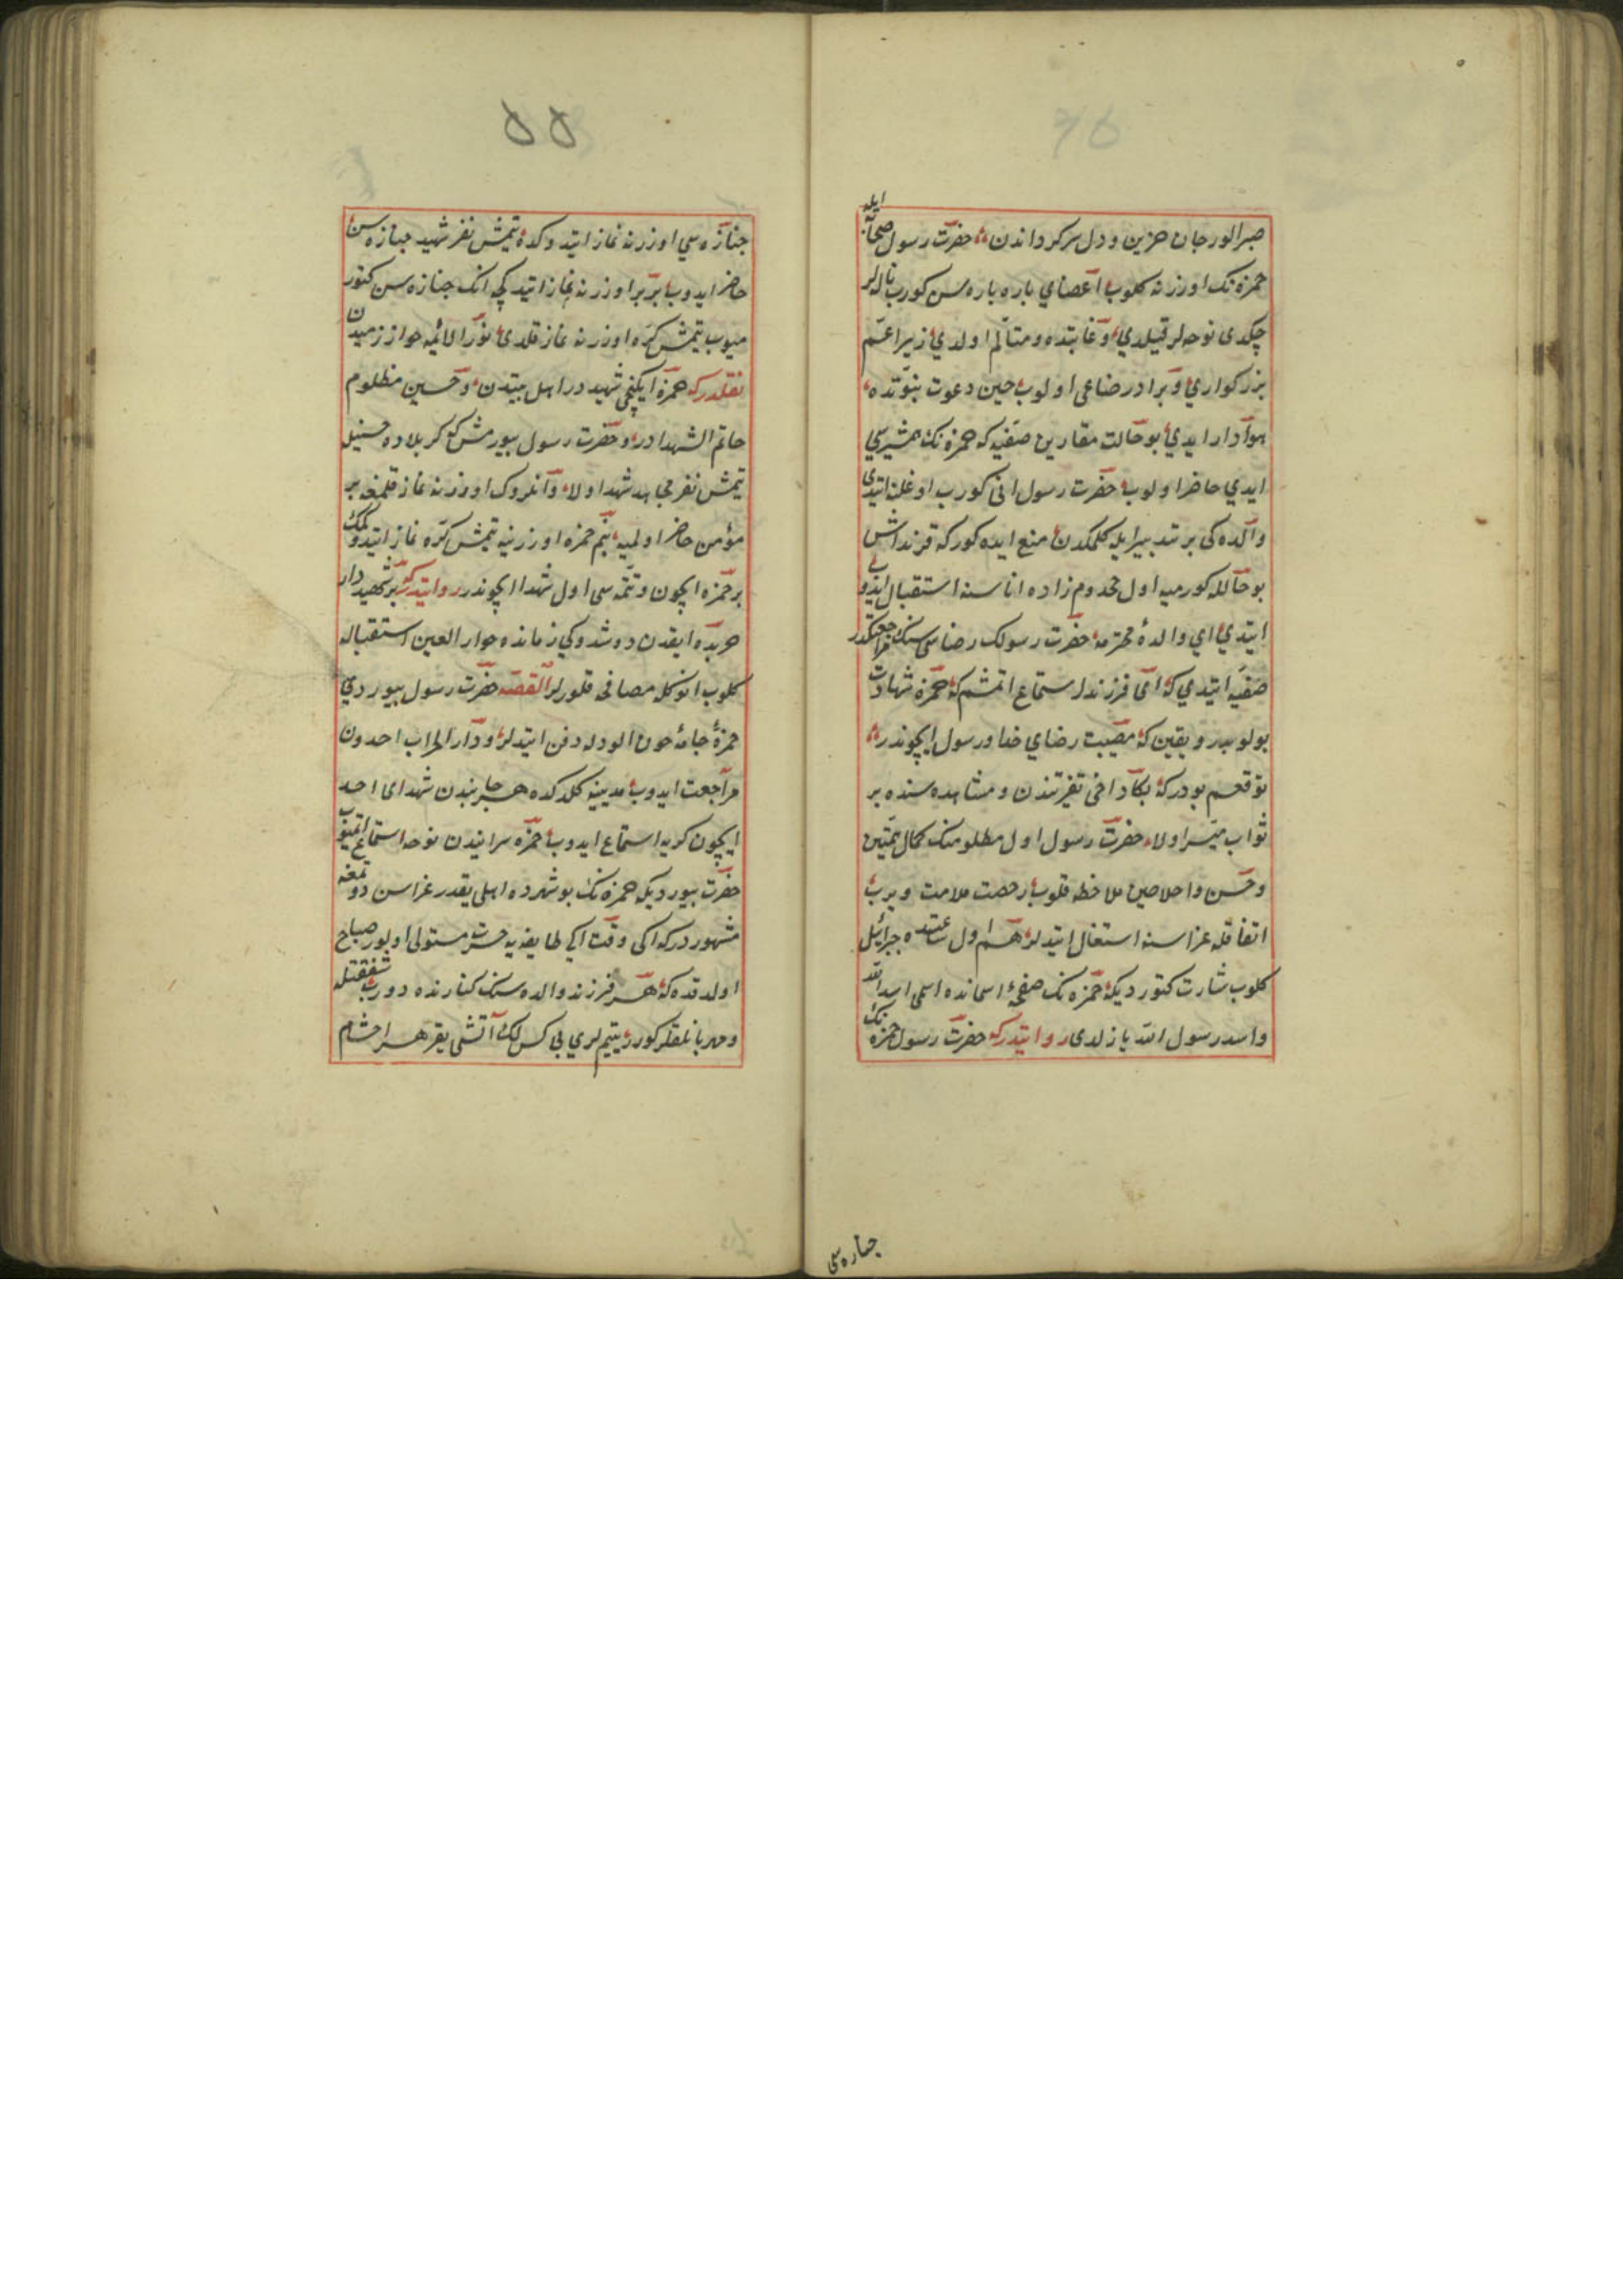 صبر الور جان حزین و دل سرکرداندن حضرت رسول صحابه ایله
حمزه نک اوزرنه کلوب اعضای پاره پاره سن کورب ناله لر
چکدی نوحه لر قیلدی و غایتده و متألم اولدی زیرا عم
بزرکواری و برادر رضاعی اولوب حین دعوت نبوتده
هوادار ایدی بو حالت مقارین صفیه که حمزه نک همشیره سی
ایدی حاضر اولوب حضرت رسول انی کورب اوغلنه ایتدی
والده کی بر تدبیر ایله کلمکدن منع ایده کورکه قرنداش
بو حالله کورمیه اول مخدوم زاده اناسنه استقبال ایدوب
ایتدی ای والدهٔ محترمه حضرت رسولک رضاسی سنک مراجعتکدر
صفیه ایتدی که ای فرزند استماع اتمشم که حمزه شهادت
بولوبدر و یقین که مصیبت رضای خدا و رسول ایچوندر
توقعم بودر که بکا دخی تقریتندن و مشاهده سنده بر
ثواب میسر اولا حضرت رسول اول مظلومنک کمال
و حسن و اخلاصین ملاحظه قلوب رخصت ملامت ویرب
اتفاقله عزاسنه اشتغال ایتدلر هم اول ساعتده جبرائیل
کلوب بشارت کتوردیکه حمزه نک صفحهٔ اسمانده اسمی اسد الله
و اسد رسول الله یازلدی روایتدرکه حضرت رسول حمزه نک
جنازه سی
۵۵
جنازه سی اوزرنه نماز ایتدوکده یتمش نفر شهید جنازه سن
حاضر ایدوب بربر اوزرنه نماز ایتدکچه انک جنازه سن کتور
میوب یتمش کره اوزرنه نماز قلدی نور الائمه خوارزمیدن
نقلدرکه حمزه ایکنجی شهیددر اهل بیتدن و حسین مظلوم
خاتم الشهدادر و حضرت رسول بیورمش که کربلاده حسینله
یتمش نفر مجاهد شهد اولا و انلروک اوزرنه نماز قلمغه بر
مؤمن حاضر اولمیه بنم حمزه اوزرینه یتمش کره نماز ایتدوکم
بر حمزه ایچون و تتمه سی اول شهدا ایچوندر روایتدرکه بر شهید دار
هر بده ایقدن دوشدوکی زمانده حوار العین استقباله
کلوب انوکله مصافی قلورلر القصه حضرت رسول بیوردی
حمزهٔ جامهٔ خون الودله دفن ایتدلر و دار الحراب احدون
مراجعت ایدوب مدینیه کلدکده هر جانبدن شهدای احد
ایچون کریه استماع ایدوب حمزه سرانیدن نوحه استماع اتمیوب
حضرت بیوردیکه حمزه نک بو شهرده اهلی یقدر عزاسن دوتمغه
مشهوردرکه اکی وقت اکی طایفه یه حسرت مستولی اولور صباح
اولدقده که هر فرزند والده سنک کنارنده دورب شفقتله
و مهربانلقلر کورر یتیم لری بی کس لک آتشی یقر هر اخشام